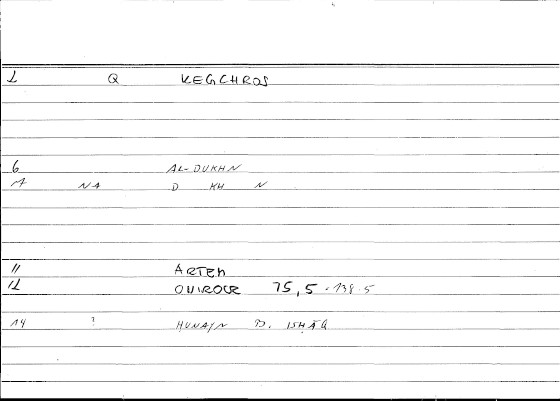 1 Q KEGCHROS
6 AL-DUKHN
7 NA D KH N
11 ARTEM
12 QUIROUR 75,5 - 138.5
14 ? HUNAYN B. ISHĀQ